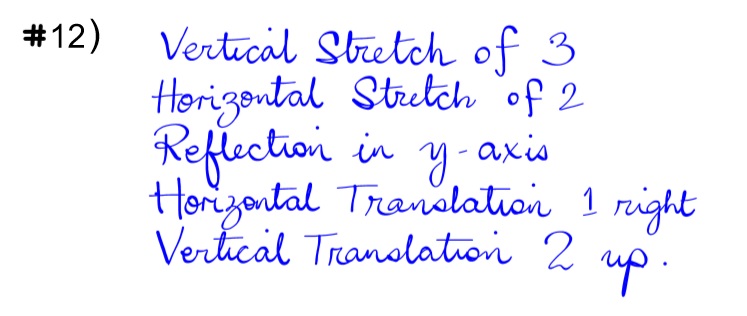 #12) Vertical Stretch of 3
Horizontal Stretch of 2
Reflection in y-axis
Horizontal Translation 1 right
Vertical Translation 2 up.